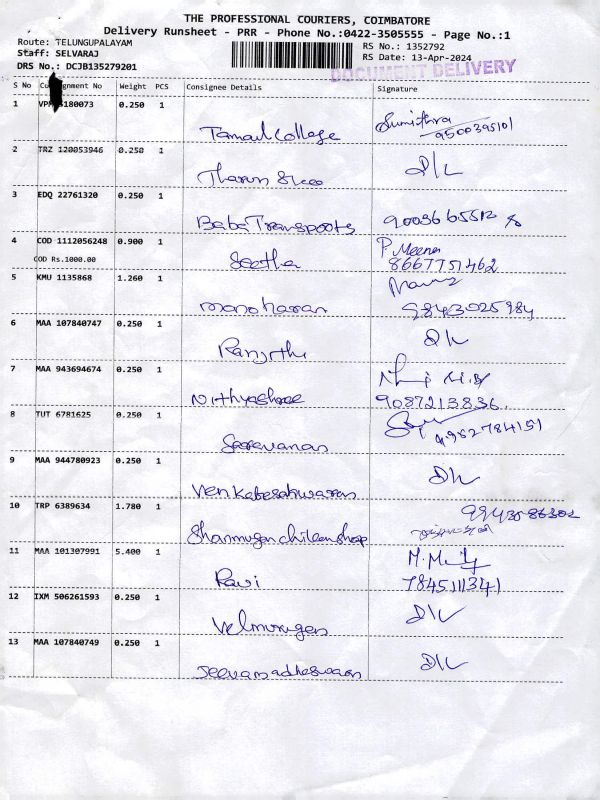 THE PROFESSIONAL COURIERS, COIMBATORE
Delivery Runsheet - PRR - Phone No.:0422-3505555 - Page No.:1
Route: TELUNGUPALAYAM
Staff: SELVARAJ
DRS No.: DCJB135279201
RS No.: 1352792
RS Date: 13-Apr-2024
DOCUMENT DELIVERY
S No Consignment No Weight PCS Consignee Details Signature
1 180073 0.250 1
Sumithra
9500395101
Tamail College
2 TRZ 120053946 0.250 1
D/L
Tharun
3 EDQ 22761320 0.250 1
Baba Transpoots 9003665512
4 COD 1112056248 0.900 1
P. Meena
COD Rs.1000.00
Seetha 8667751462
5 KMU 1135868 1.260 1
manoharan 9843025984
6 MAA 107840747 0.250 1
D/L
Ranjithi
7 MAA 943694674 0.250 1
Nithyashree 9087213836.
8 TUT 6781625 0.250 1
9952784151
Saravanan
9 MAA 944780923 0.250 1
D/L
Venkateshwaran
10 TRP 6389634 1.780 1
Shanmugan chicken shop
11 MAA 101307991 5.400 1
Ravi 7845111341
12 IXM 506261593 0.250 1
D/L
Velmurugan
13 MAA 107840749 0.250 1
D/L